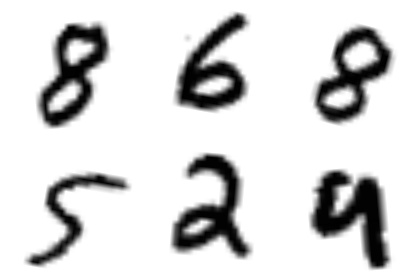 8 6 8
5 2 9